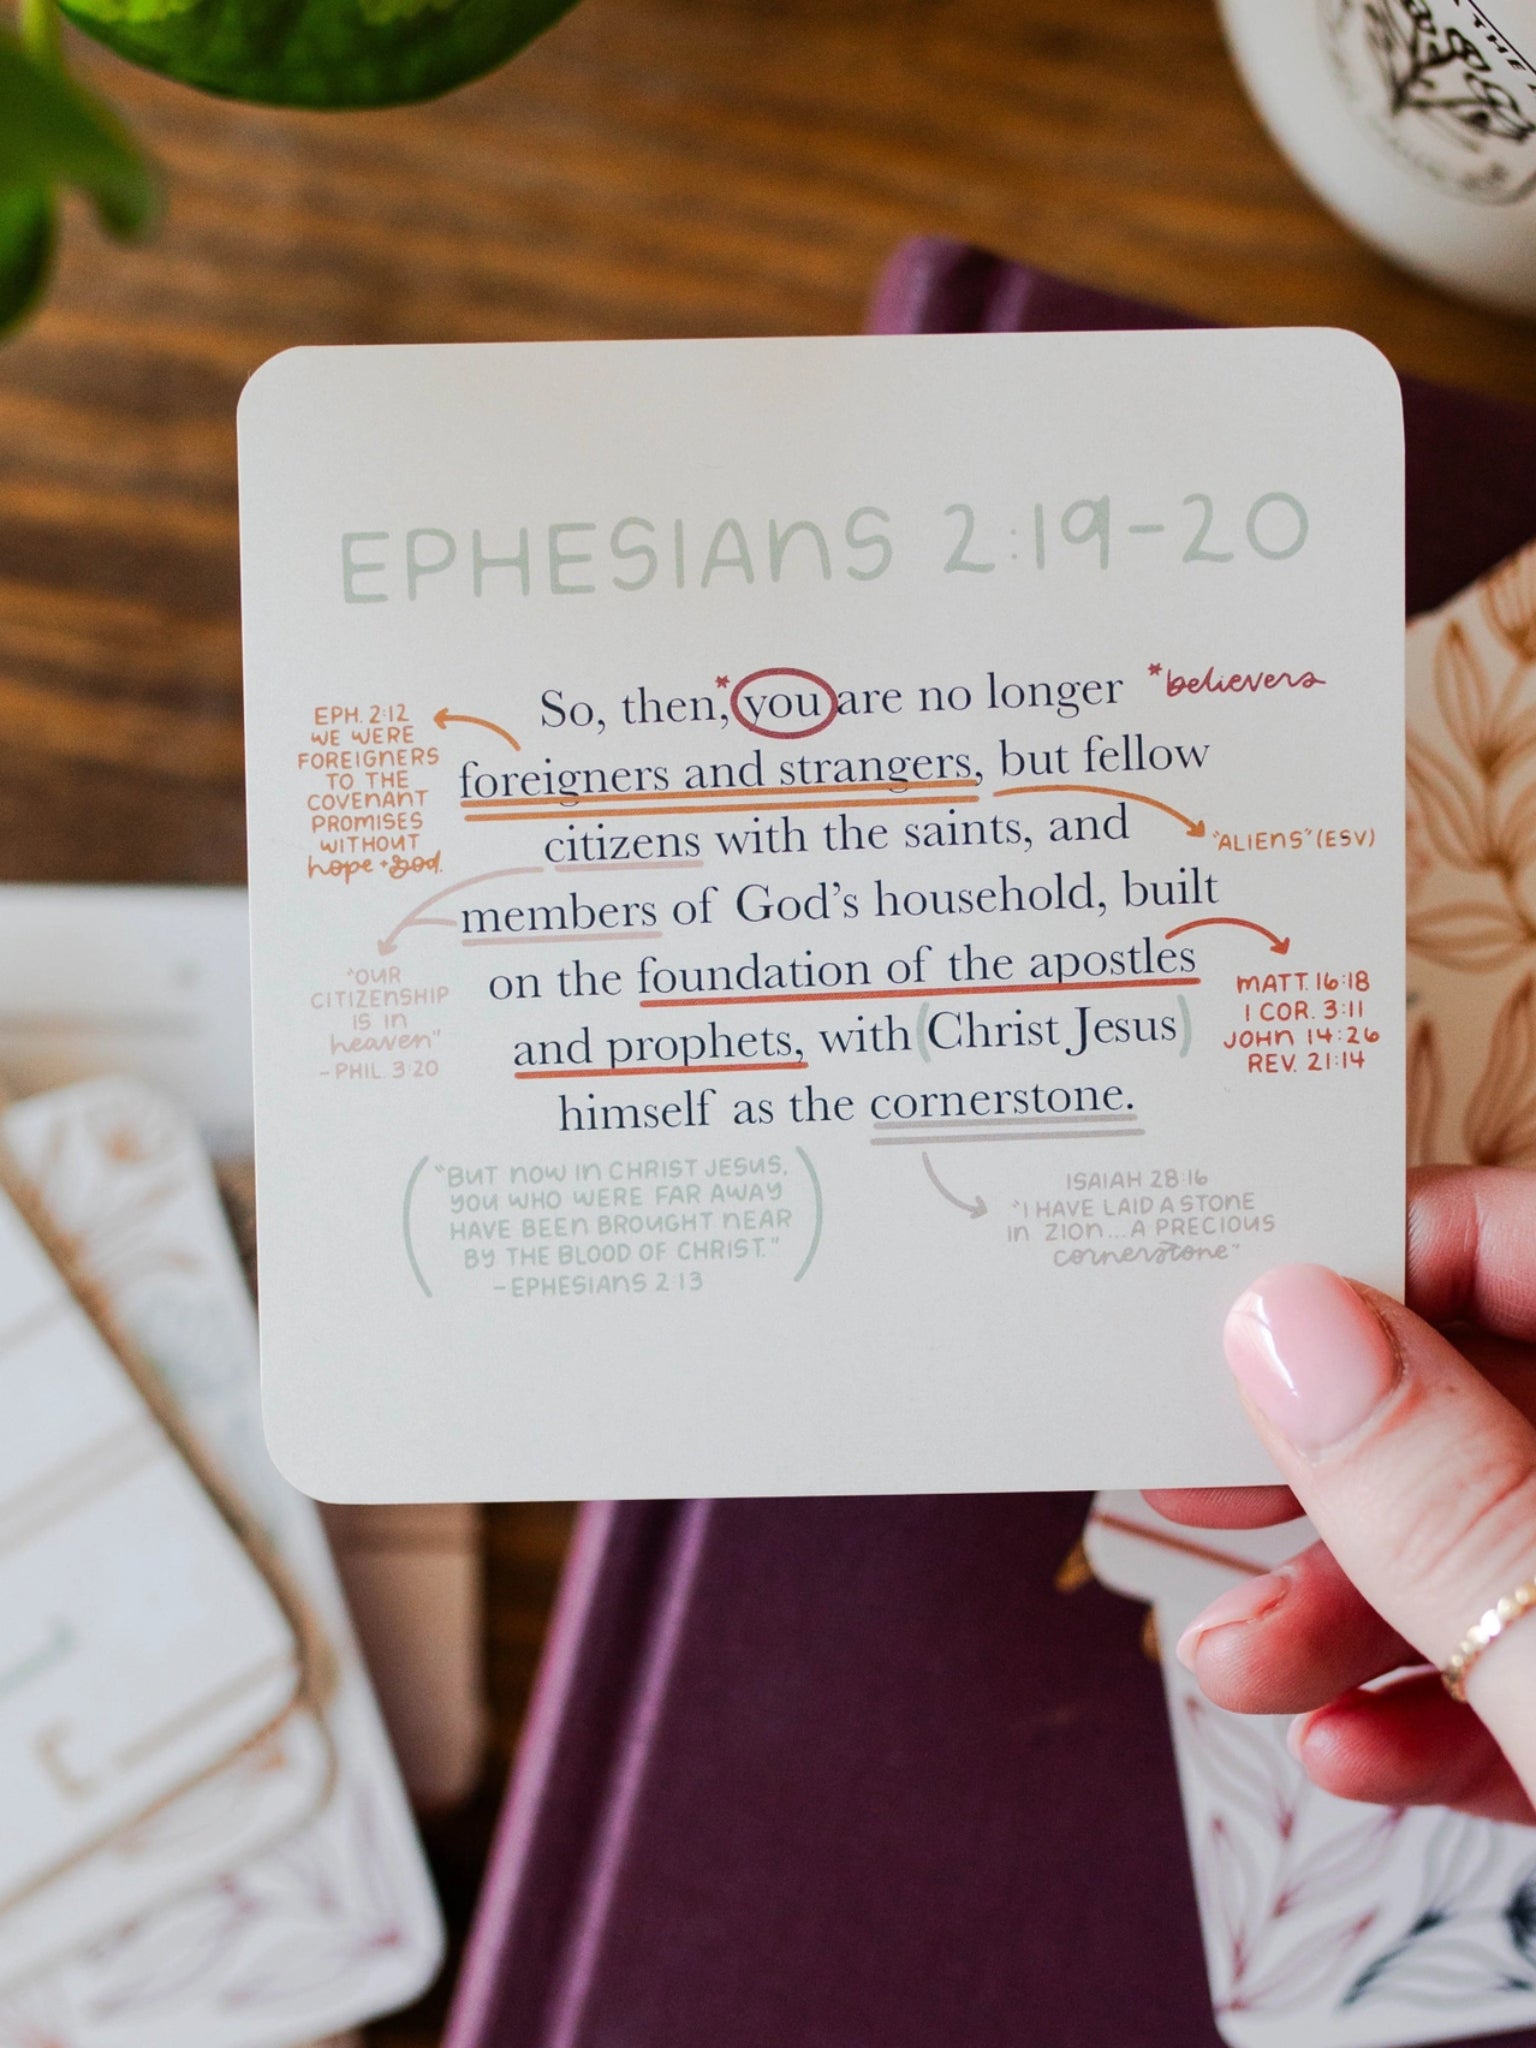 EPHESIANS 2:19-20
So, then,* you are no longer *believers
foreigners and strangers, but fellow
citizens with the saints, and
members of God's household, built
on the foundation of the apostles
and prophets, with (Christ Jesus)
himself as the cornerstone.
EPH. 2:12
WE WERE
FOREIGNERS
TO THE
COVENANT
PROMISES
WITHOUT
hope + God.
"ALIENS" (ESV)
"OUR
CITIZENSHIP
IS IN
heaven"
- PHIL. 3:20
MATT. 16:18
1 COR. 3:11
JOHN 14:26
REV. 21:14
("BUT NOW IN CHRIST JESUS,
YOU WHO WERE FAR AWAY
HAVE BEEN BROUGHT NEAR
BY THE BLOOD OF CHRIST."
- EPHESIANS 2:13)
ISAIAH 28:16
"I HAVE LAID A STONE
IN ZION... A PRECIOUS
cornerstone"
THE